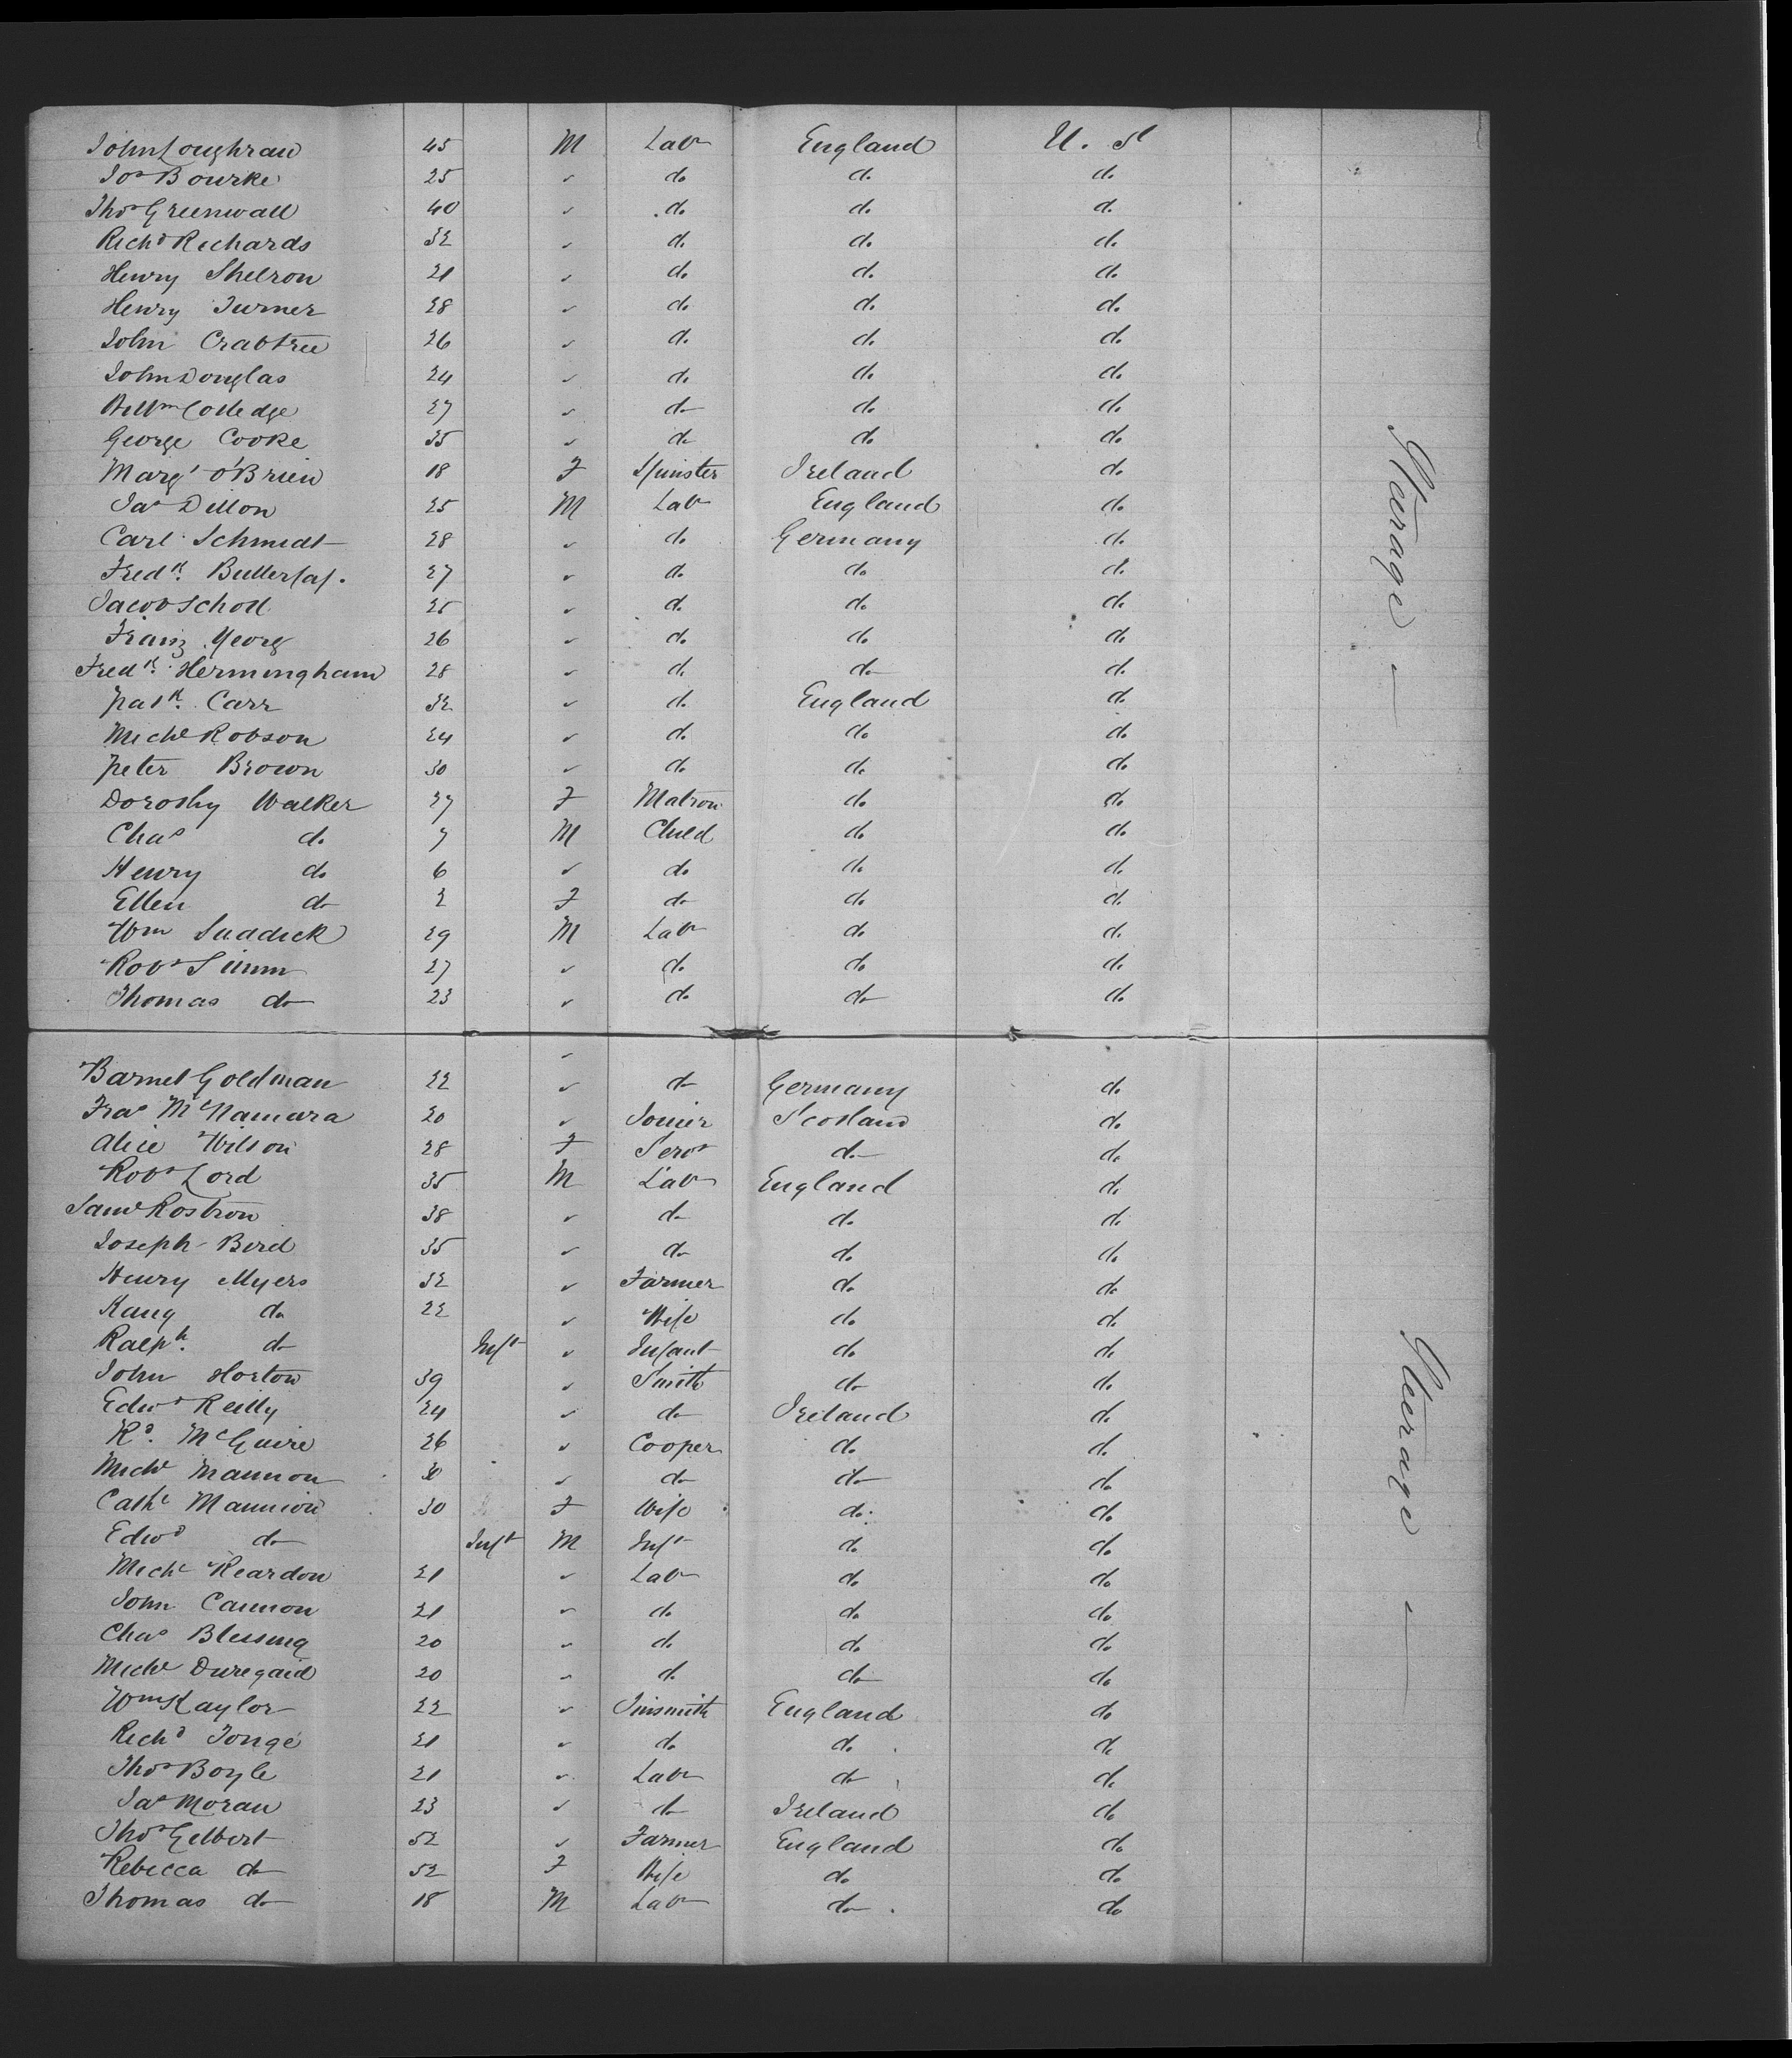 John Loughran 45 M Labr England U. St
Jos Bourke 25 " do do do
Thos Greenwall 40 " do do do
Richd Richards 32 " do do do
Henry Shelron 21 " do do do
Henry Turner 28 " do do do
John Crabtree 26 " do do do
John Douglas 24 " do do do
Willm Colledge 27 " do do do
George Cooke 35 " do do do
Margt O'Brien 18 F Spinster Ireland do
Jas Dillon 25 M Labr England do
Carl Schmidt 28 " do Germany do
Fredk. 27 " do do do
Jacob Scholl 25 " do do do
Franz Georg 26 " do do do
Fredk. Hermingham 28 " do do do
Patk. Carr 32 " do England do
Michl Robson 24 " do do do
Peter Brown 30 " do do do
Dorothy Walker 27 F Matron do do
Chas do 7 M Child do do
Henry do 6 " do do do
Ellen do 2 F do do do
Wm Suddick 29 M Labr do do
Robt Simm 27 " do do do
Thomas do 23 " do do do
Barnet Goldman 22 " do Germany do
Fras McNamara 20 " Joiner Scotland do
Alice Wilson 28 F Servt do do
Robt Lord 35 M Labr England do
Saml Rostron 38 " do do do
Joseph Bird 35 " do do do
Henry Myers 32 " Farmer do do
do 22 " Wife do do
Ralph. do Inft " Infant do do
John Horton 39 " Smith do do
Edwd Reilly 24 " do Ireland do
Rd. McGuire 26 " Cooper do do
Michl Mannion 30 " do do do
Cathe Mannion 30 F Wife do do
Edwd do Inft M Inft do do
Michl Reardon 21 " Labr do do
John Cannon 21 " do do do
Chas Blessing 20 " do do do
Michl 20 " do do do
Wm Kaylor 22 " Tinsmith England do
Richd Tonge 21 " do do do
Thos Boyle 21 " Labr do do
Jas Moran 23 " do Ireland do
Thos Gelbert 52 " Farmer England do
Rebecca do 52 F Wife do do
Thomas do 18 M Labr do do
Steerage
Steerage